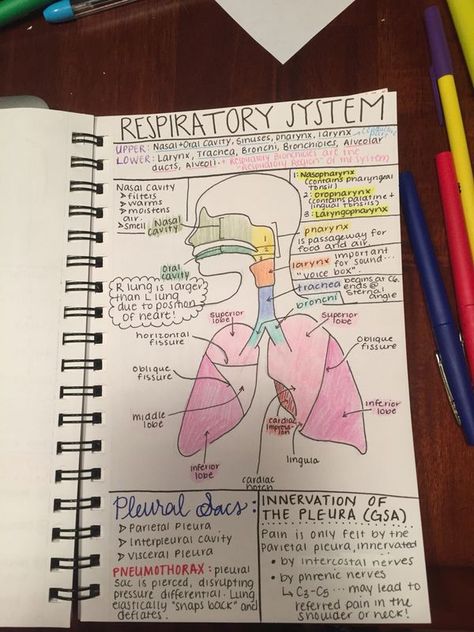 RESPIRATORY SYSTEM
UPPER: Nasal + Oral cavity, sinuses, pharynx, larynx
LOWER: Larynx, Trachea, Bronchi, Bronchioles, Alveolar
ducts, Alveoli * Respiratory Bronchioles are the
"Respiratory Region" of my system
Nasal Cavity
➢ filters
➢ warms
➢ moistens
air.
➢ smell
Nasal
cavity
Oral
cavity
1: Nasopharynx
(contains pharyngeal
tonsil)
2: Oropharynx
(contains palatine +
lingual tonsils)
3: Laryngopharynx
1
2
3
pharynx
is passageway for
food and air.
larynx important
for sound...
"voice box".
trachea begins at C6.
ends @
sternal
angle
bronchi
R lung is larger
than L lung
due to position
of heart!
superior
lobe
horizontal
fissure
oblique
fissure
middle
lobe
inferior
lobe
superior
lobe
oblique
fissure
inferior
lobe
cardiac
impression
lingula
cardiac
notch
Pleural Sacs:
➢ Parietal Pleura
➢ Interpleural cavity
➢ Visceral Pleura
PNEUMOTHORAX: pleural
sac is pierced, disrupting
pressure differential. Lung
elastically "snaps back" and
deflates.
INNERVATION OF
THE PLEURA (GSA)
Pain is only felt by the
Parietal pleura, innervated
• by intercostal nerves
• by phrenic nerves
↳ C3-C5... may lead to
referred pain in the
shoulder or neck!